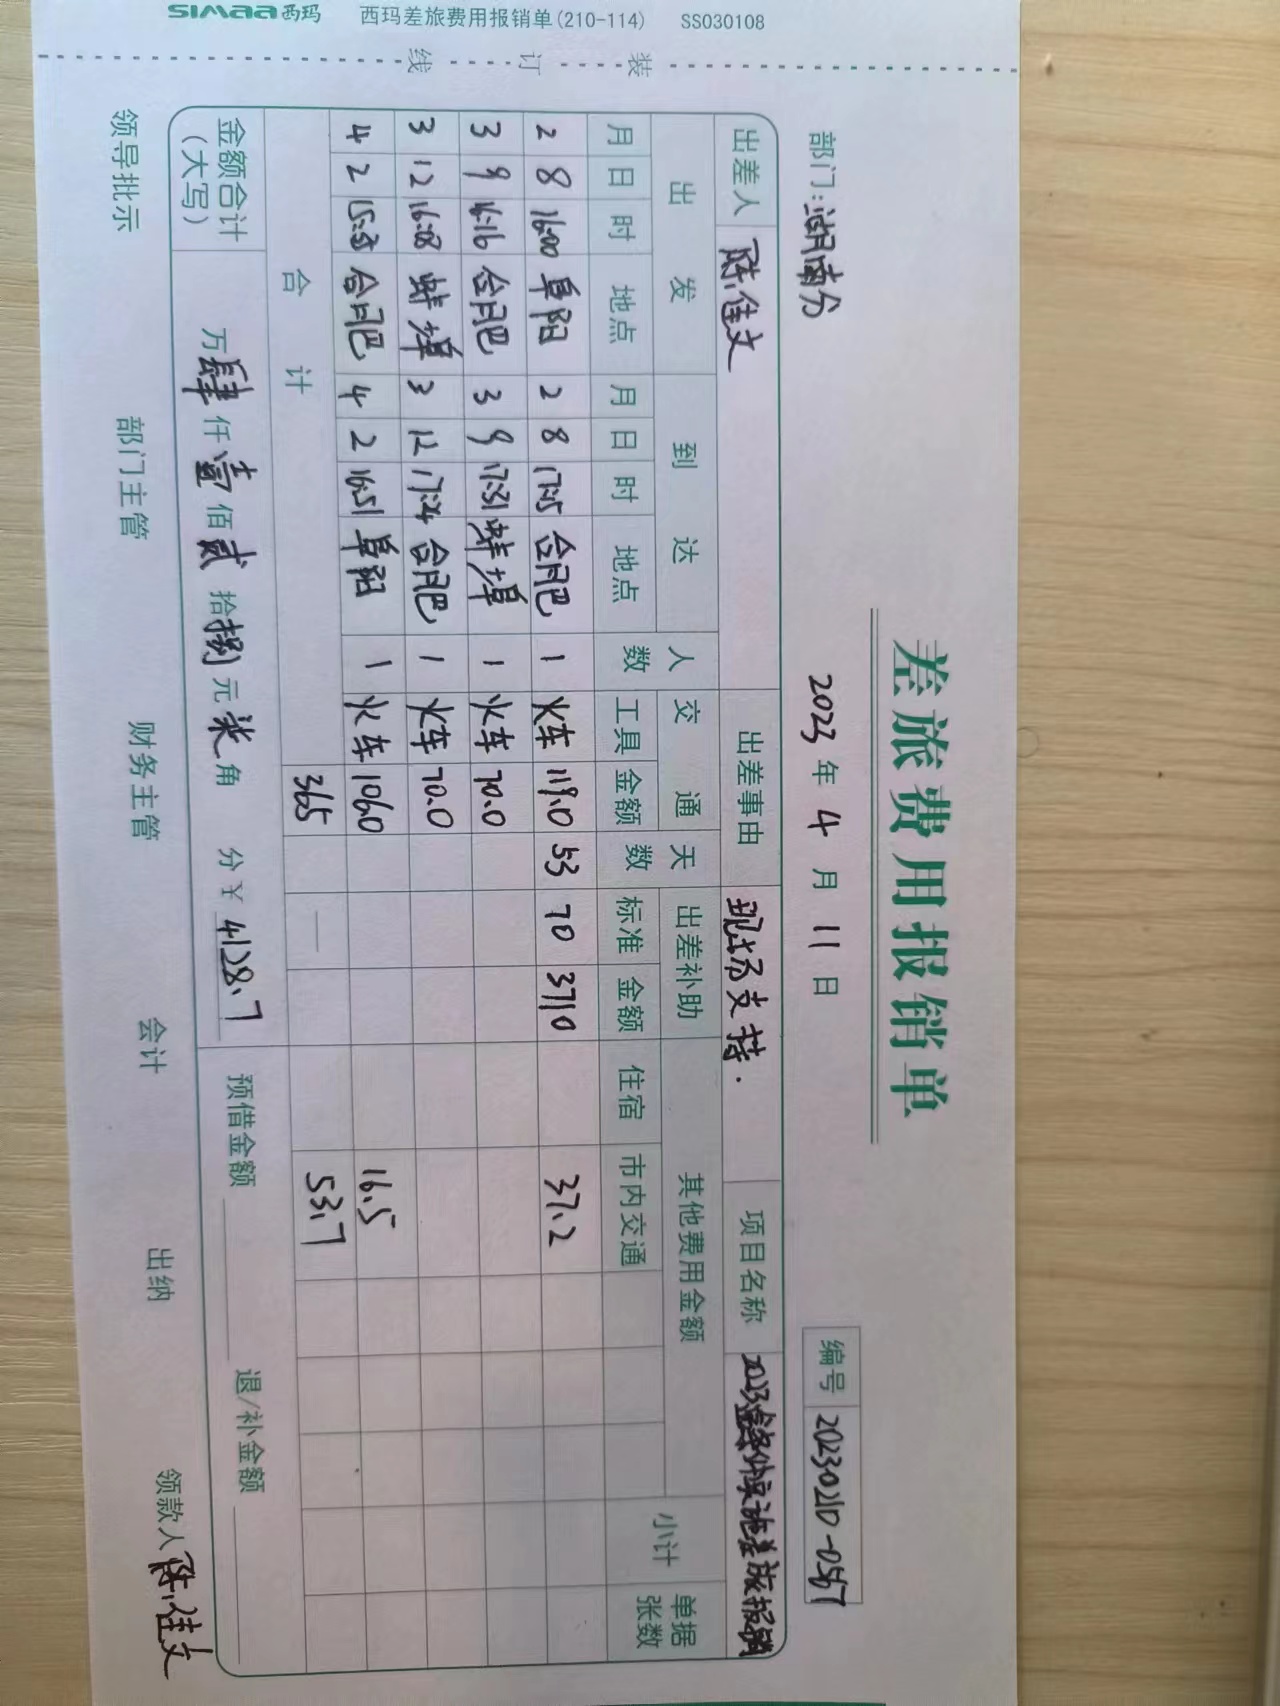 SIMAA西玛 西玛差旅费用报销单(210-114) SS030108
装 订 线
差旅费用报销单
部门:湖南分 2023 年 4 月 11 日 编号 20230210-0567
出差人 陈佳文 出差事由 现场支持. 项目名称 2023 实施差旅报销
出发 到达 人数 交通 天数 出差补助 其他费用金额 小计 单据张数
月 日 时 地点 月 日 时 地点 工具 金额 标准 金额 住宿 市内交通
2 8 16:00 阜阳 2 8 17:15 合肥 1 火车 119.0 53 70 3710 37.2
3 9 16:16 合肥 3 9 17:31 蚌埠 1 火车 70.0
3 12 16:08 蚌埠 3 12 17:24 合肥 1 火车 70.0
4 2 合肥 4 2 16:51 阜阳 1 火车 106.0 16.5
合计 365 — 53.7
金额合计(大写) 万肆仟壹佰贰拾捌元柒角 分 ¥ 4128.7 预借金额 退/补金额
领导批示 部门主管 财务主管 会计 出纳 领款人 陈佳文